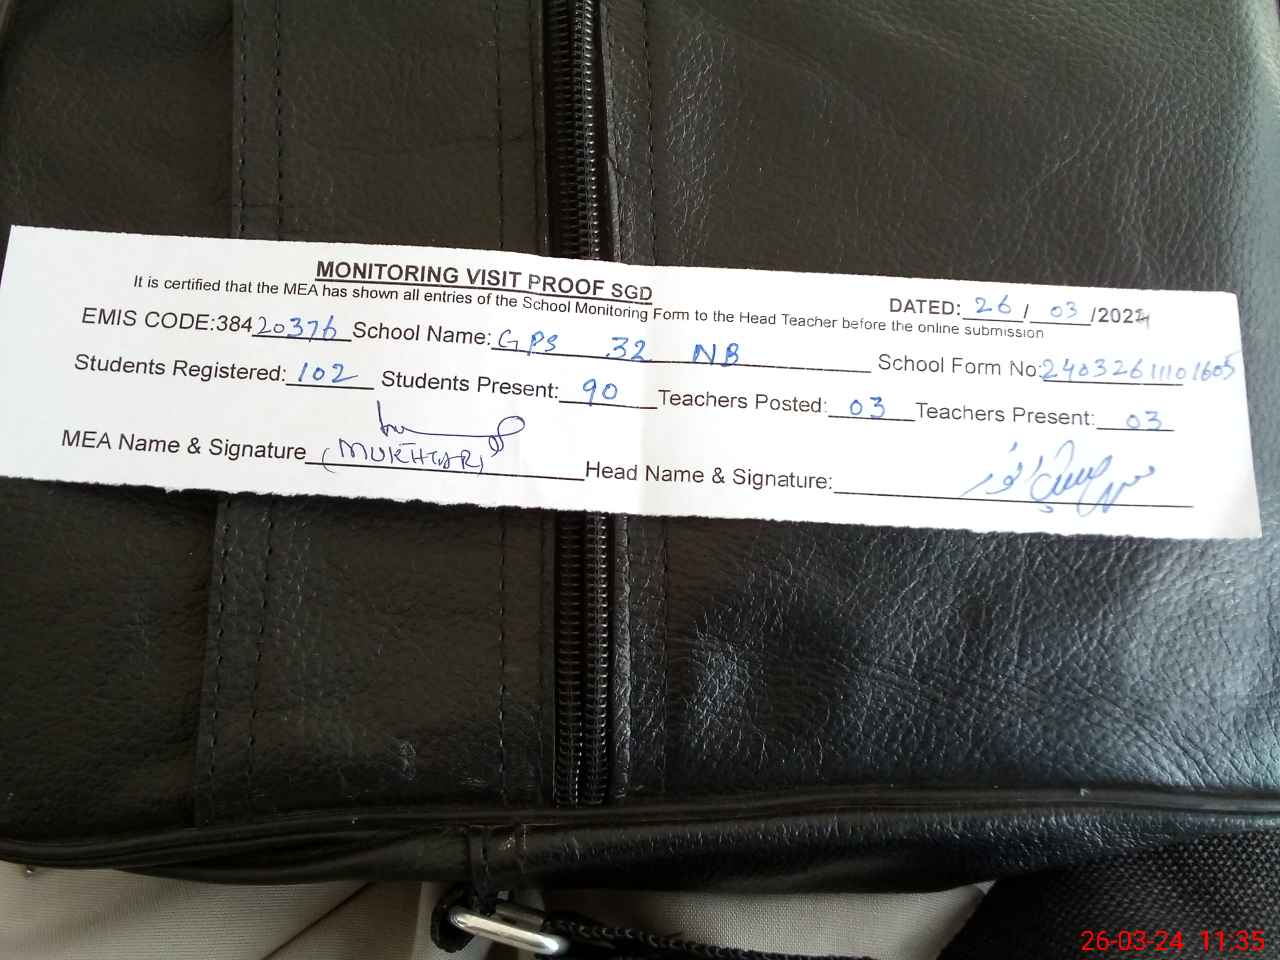 MONITORING VISIT PROOF SGD
It is certified that the MEA has shown all entries of the School Monitoring Form to the Head Teacher before the online submission
DATED: 26 / 03 /2024
EMIS CODE:38420376 School Name: GPS 32 NB School Form No: 24032611101605
Students Registered: 102 Students Present: 90 Teachers Posted: 03 Teachers Present: 03
MEA Name & Signature (MUKHTAR) Head Name & Signature:
26-03-24 11:35